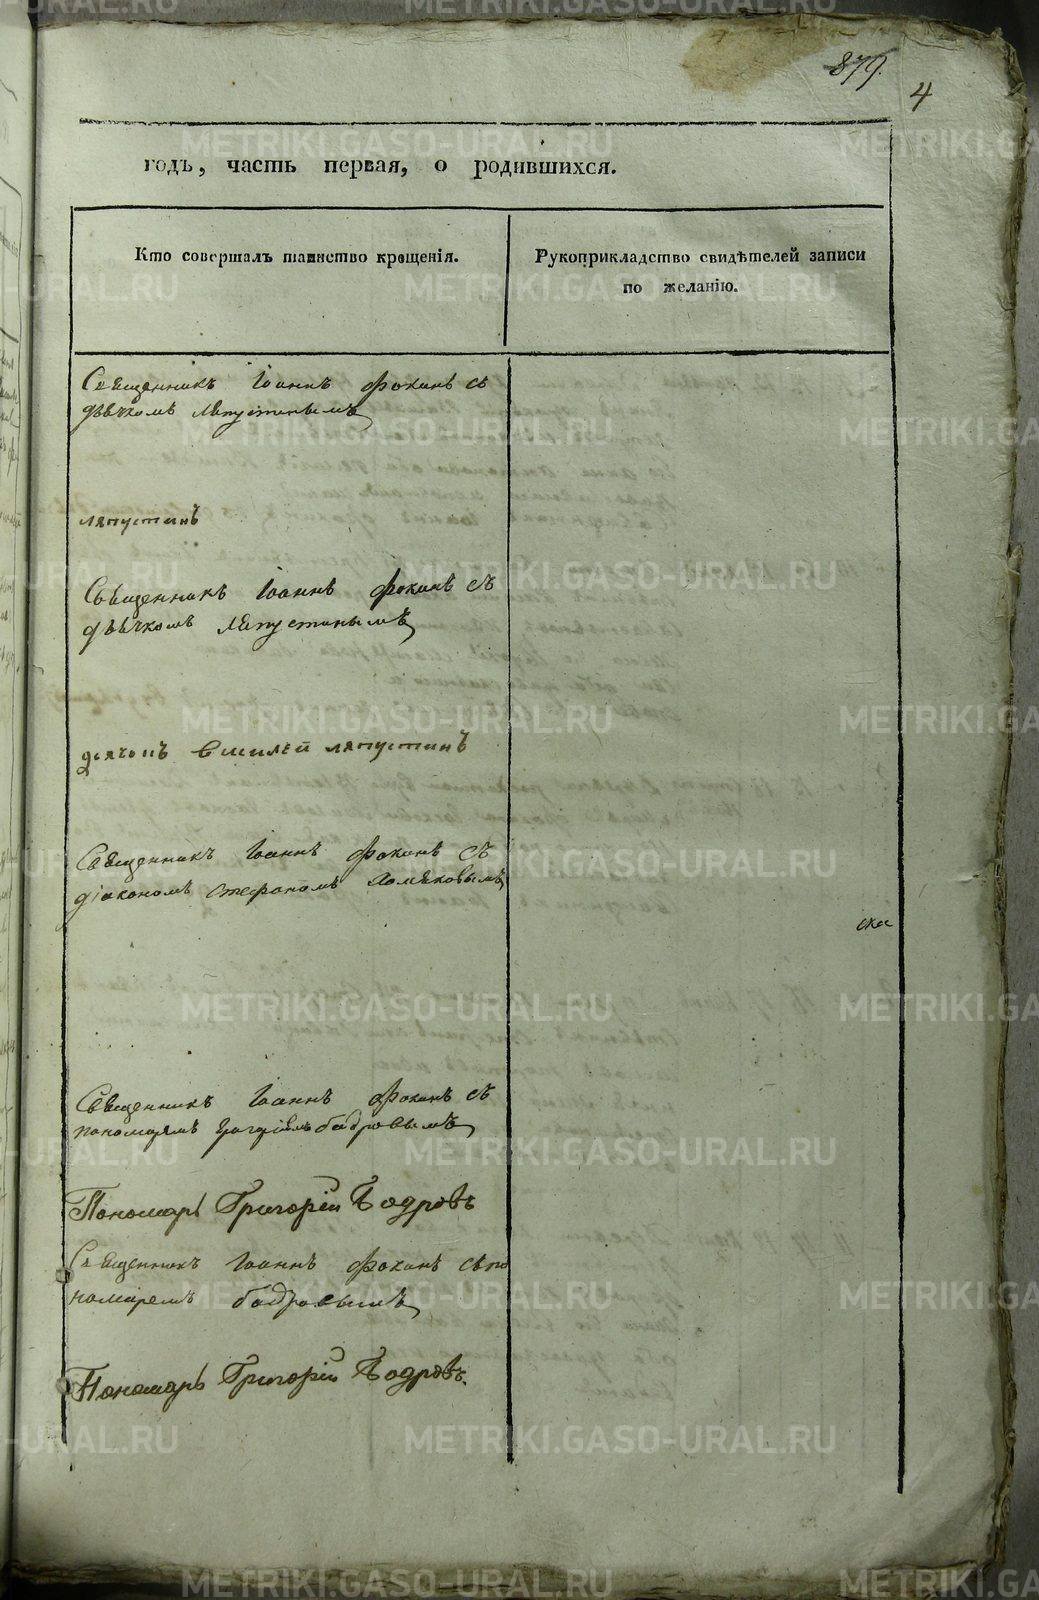 879.
4
годъ, часть первая, о родившихся.
Кто совершалъ таинство крещенія.
Рукоприкладство свидѣтелей записи
по желанію.
Священникъ Іоаннъ Фокинъ съ
дьячкомъ Ляпустинымъ
ляпустинъ
Священникъ Іоаннъ Фокинъ съ
дьячкомъ Ляпустинымъ
дьячокъ Василей ляпустинъ
Священникъ Іоаннъ Фокинъ съ
діакономъ Стефаномъ Хомяковымъ
Священникъ Іоаннъ Фокинъ съ
пономаремъ Григоріемъ бодровымъ
Пономарь Григорій Бодровъ
Священникъ Іоаннъ Фокинъ съ по
номаремъ бодровымъ
Пономарь Григорій Бодровъ.
METRIKI.GASO-URAL.RU